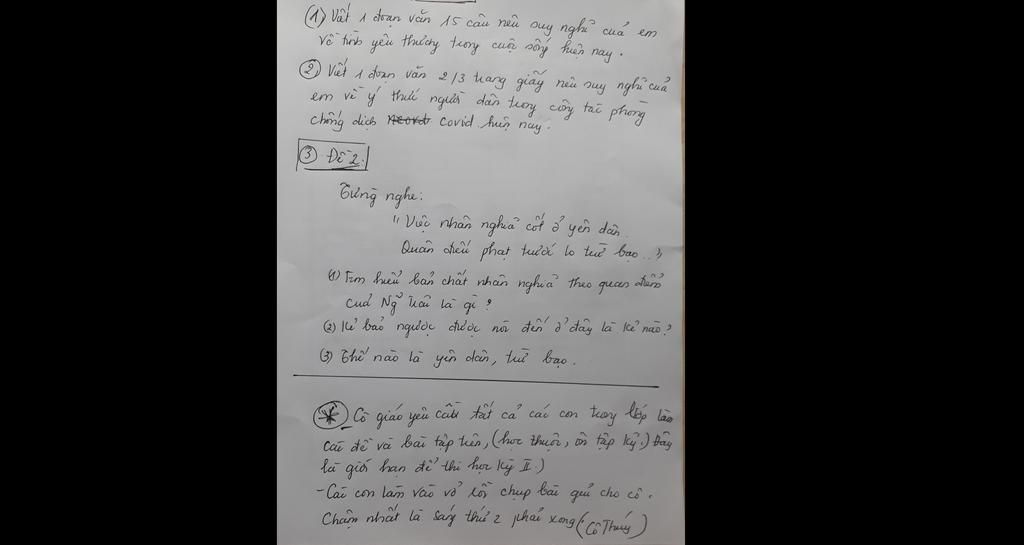 (1) Viết 1 đoạn văn 15 câu nêu suy nghĩ của em
về tình yêu thương trong cuộc sống hiện nay.
(2) Viết 1 đoạn văn 2/3 trang giấy nêu suy nghĩ của
em về ý thức người dân trong công tác phòng
chống dịch covid hiện nay.
(3) Đề 2.
Từng nghe:
"Việc nhân nghĩa cốt ở yên dân
Quân điếu phạt trước lo trừ bạo..."
(1) Tìm hiểu bản chất nhân nghĩa theo quan điểm
của Ng Trãi là gì?
(2) Kẻ bạo ngược được nói đến ở đây là kẻ nào?
(3) Thế nào là yên dân, trừ bạo.
* Cô giáo yêu cầu tất cả các con trong lớp làm
các đề và bài tập trên, (học thuộc, ôn tập kỹ.) Đây
là giới hạn để thi học kỳ II.)
- Các con làm vào vở rồi chụp bài gửi cho cô.
Chậm nhất là sáng thứ 2 phải xong (Cô Thúy)